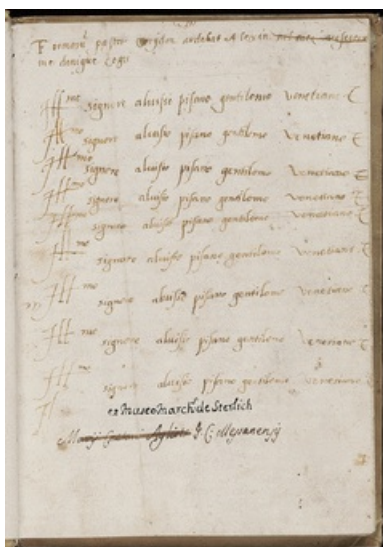 Formosum pastor Coridon ardebat Alexin
me denique coges
Ill.mo signore aluisse pisano gentilomo venetiano E
Ill.mo signore aluisse pisano gentilomo venetiano E
Ill.mo signore aluisse pisano gentilomo venetiano E
Ill.mo signore aluisse pisano gentilomo venetiano E
Ill.mo signore aluisse pisano gentilomo venetiano E
Ill.mo signore aluisse pisano gentilomo venetiano E
Ill.mo signore aluisse pisano gentilomo venetiano E
Ill.mo signore aluisse pisano gentilomo venetiano E
Ill.mo signore aluisse pisano gentilomo venetiano
Ill
ex Museo March. de Sterlich
J. C.